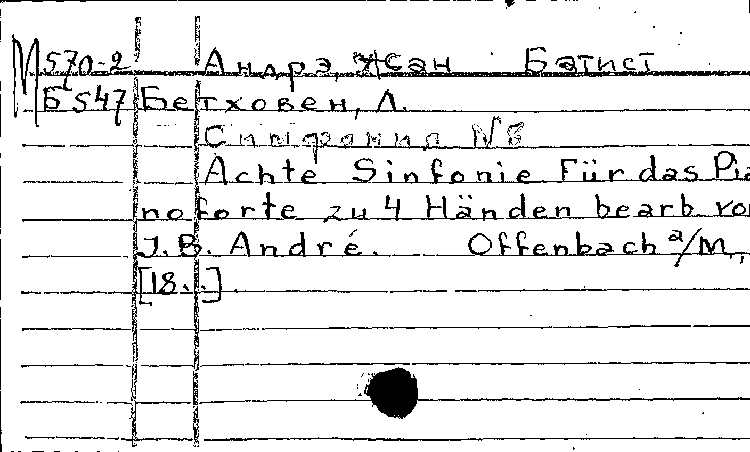 М570-2 Андрэ, Жан Батист
Б 547 Бетховен, Л.
Симфония №8
Achte Sinfonie Für das Pia
noforte zu 4 Händen bearb von
J. B. André. Offenbach a/M,
[18..].